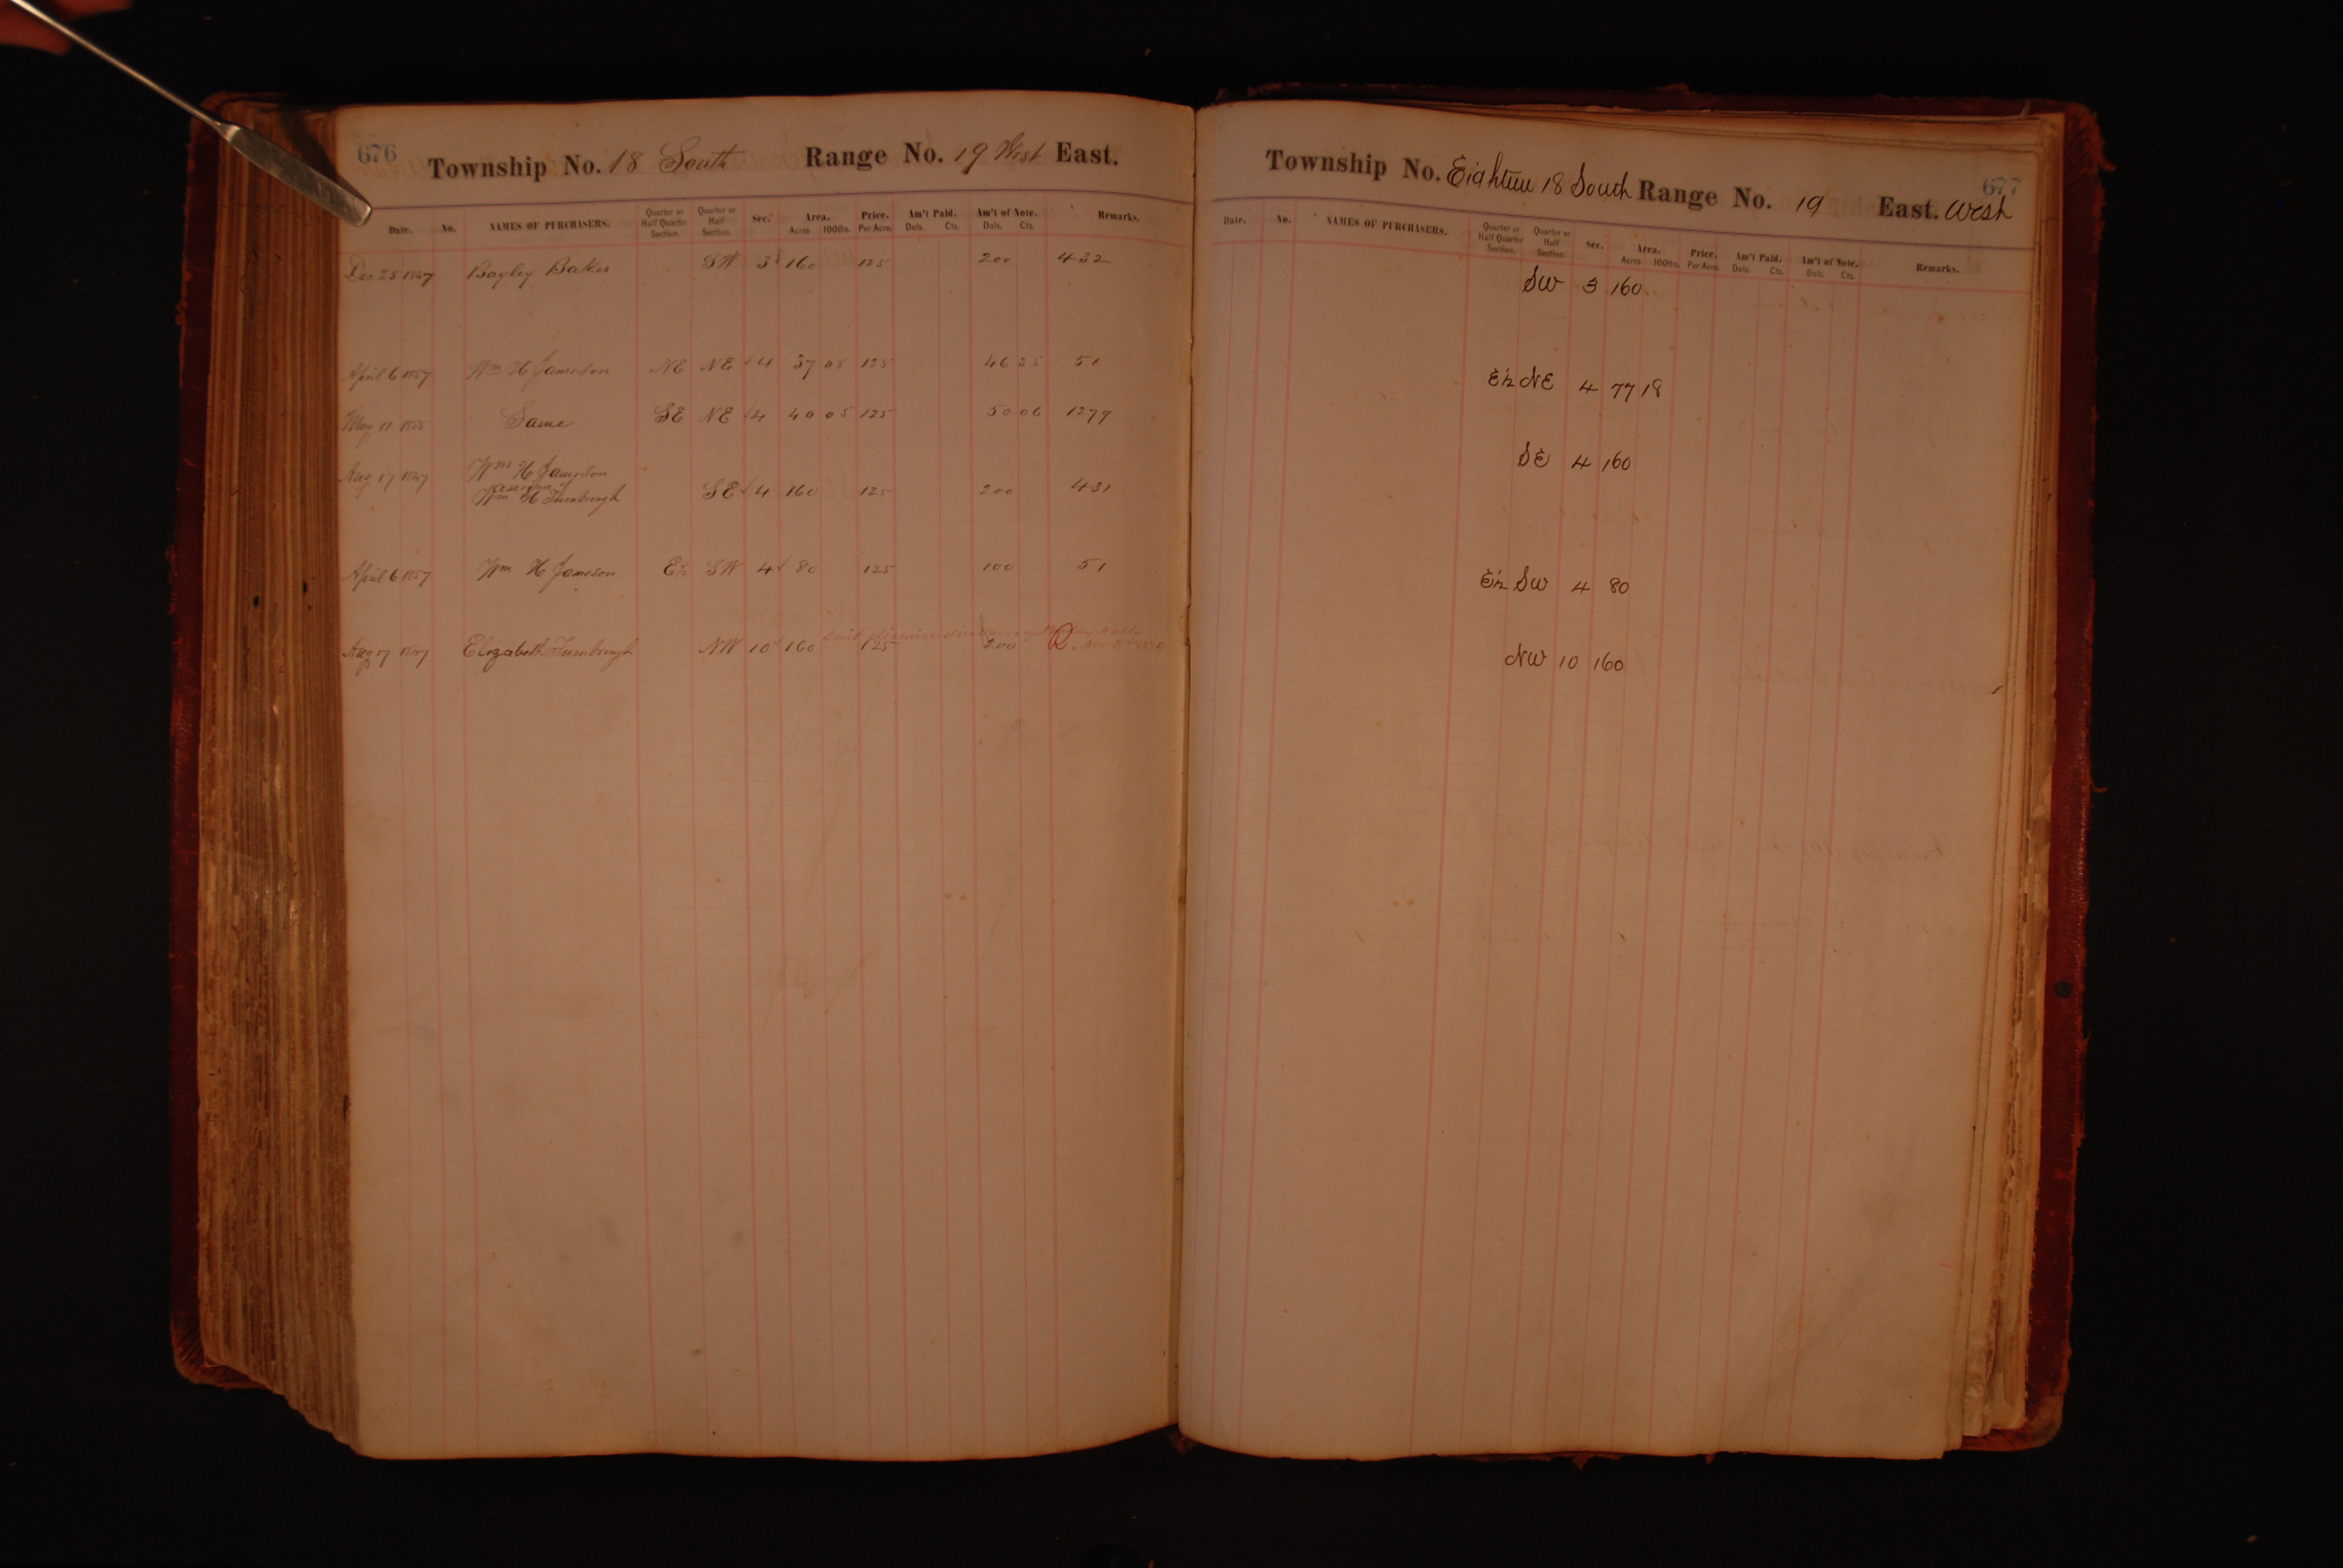 676
Township No. 18 South Range No. 19 West East.
Date. No. NAMES OF PURCHASERS. Quarter or Half Quarter Section. Quarter or Half Section. Sec. Area. Acres 100ths. Price. Per Acre. Am't Paid. Dols. Cts. Am't of Note. Dols. Cts. Remarks.
Dec 25 1847 Bayley Baker SW 3 160 125 200 432
April 6 1857 Wm H Jameson NE NE 4 37 125 46 51
May 11 1855 Same SE NE 4 40 05 125 50 06 1279
Aug 17 1847 Wm H Jameson
assignee of
Wm H Turnbrough SE 4 160 125 200 431
April 6 1857 Wm H Jameson E½ SW 4 80 125 100 51
Suit dismissed in
Aug 17 1847 Elizabeth Turnbrough NW 10 160 125 200 R.
677
Township No. Eighteen 18 South Range No. 19 East. West
Date. No. NAMES OF PURCHASERS. Quarter or Half Quarter Section. Quarter or Half Section. Sec. Area. Acres 100ths. Price. Per Acre. Am't Paid. Dols. Cts. Am't of Note. Dols. Cts. Remarks.
SW 3 160
E½ NE 4 77 18
SE 4 160
E½ SW 4 80
NW 10 160